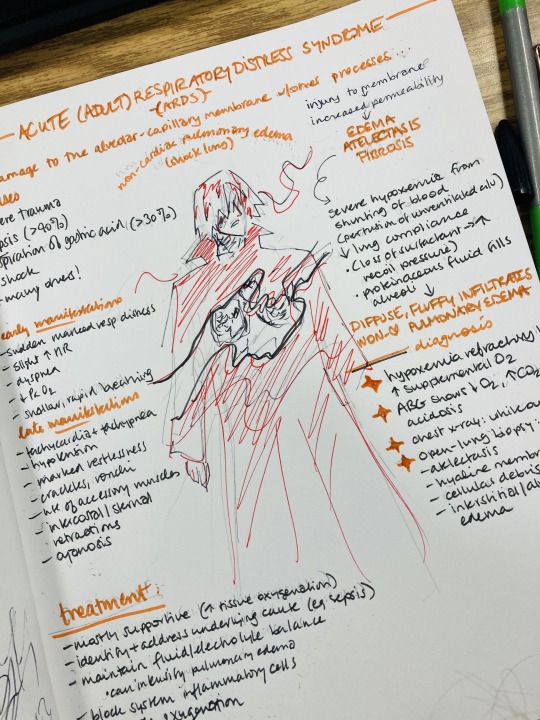 ACUTE (ADULT) RESPIRATORY DISTRESS SYNDROME
(ARDS)
damage to the alveolar-capillary membrane
processes...
non-cardiac pulmonary edema
(shock lung)
injury to membrane
increased permeability
EDEMA
ATELECTASIS
FIBROSIS
trauma
(>40%)
of gastric acid (>30%)
shock
many others!
severe hypoxemia from
shunting of blood
(perfusion of unventilated alveoli)
↓ lung compliance
• (loss of surfactant → ↑
recoil pressure)
• proteinaceous fluid fills
alveoli ↓
DIFFUSE, FLUFFY INFILTRATES
PULMONARY EDEMA
early manifestations
- sudden marked resp distress
- slight ↑ HR
- dyspnea
- shallow, rapid breathing
late manifestations
- tachycardia + tachypnea
- hypotension
- marked restlessness
- crackles, ronchi
- use of accessory muscles
- intercostal/sternal
retractions
- cyanosis
diagnosis
hypoxemia refractory
↑ supplemental O2
ABG shows ↓ O2, ↑ CO2
acidosis
chest x-ray:
open-lung biopsy:
- atelectasis
- hyaline
- cellular debris
- interstitial/
edema
treatment:
- mostly supportive (↑ tissue oxygenation)
- identify + address underlying cause (eg sepsis)
- maintain fluid/electrolyte balance
• can intensify pulmonary edema
- block system inflammatory cells
oxygenation